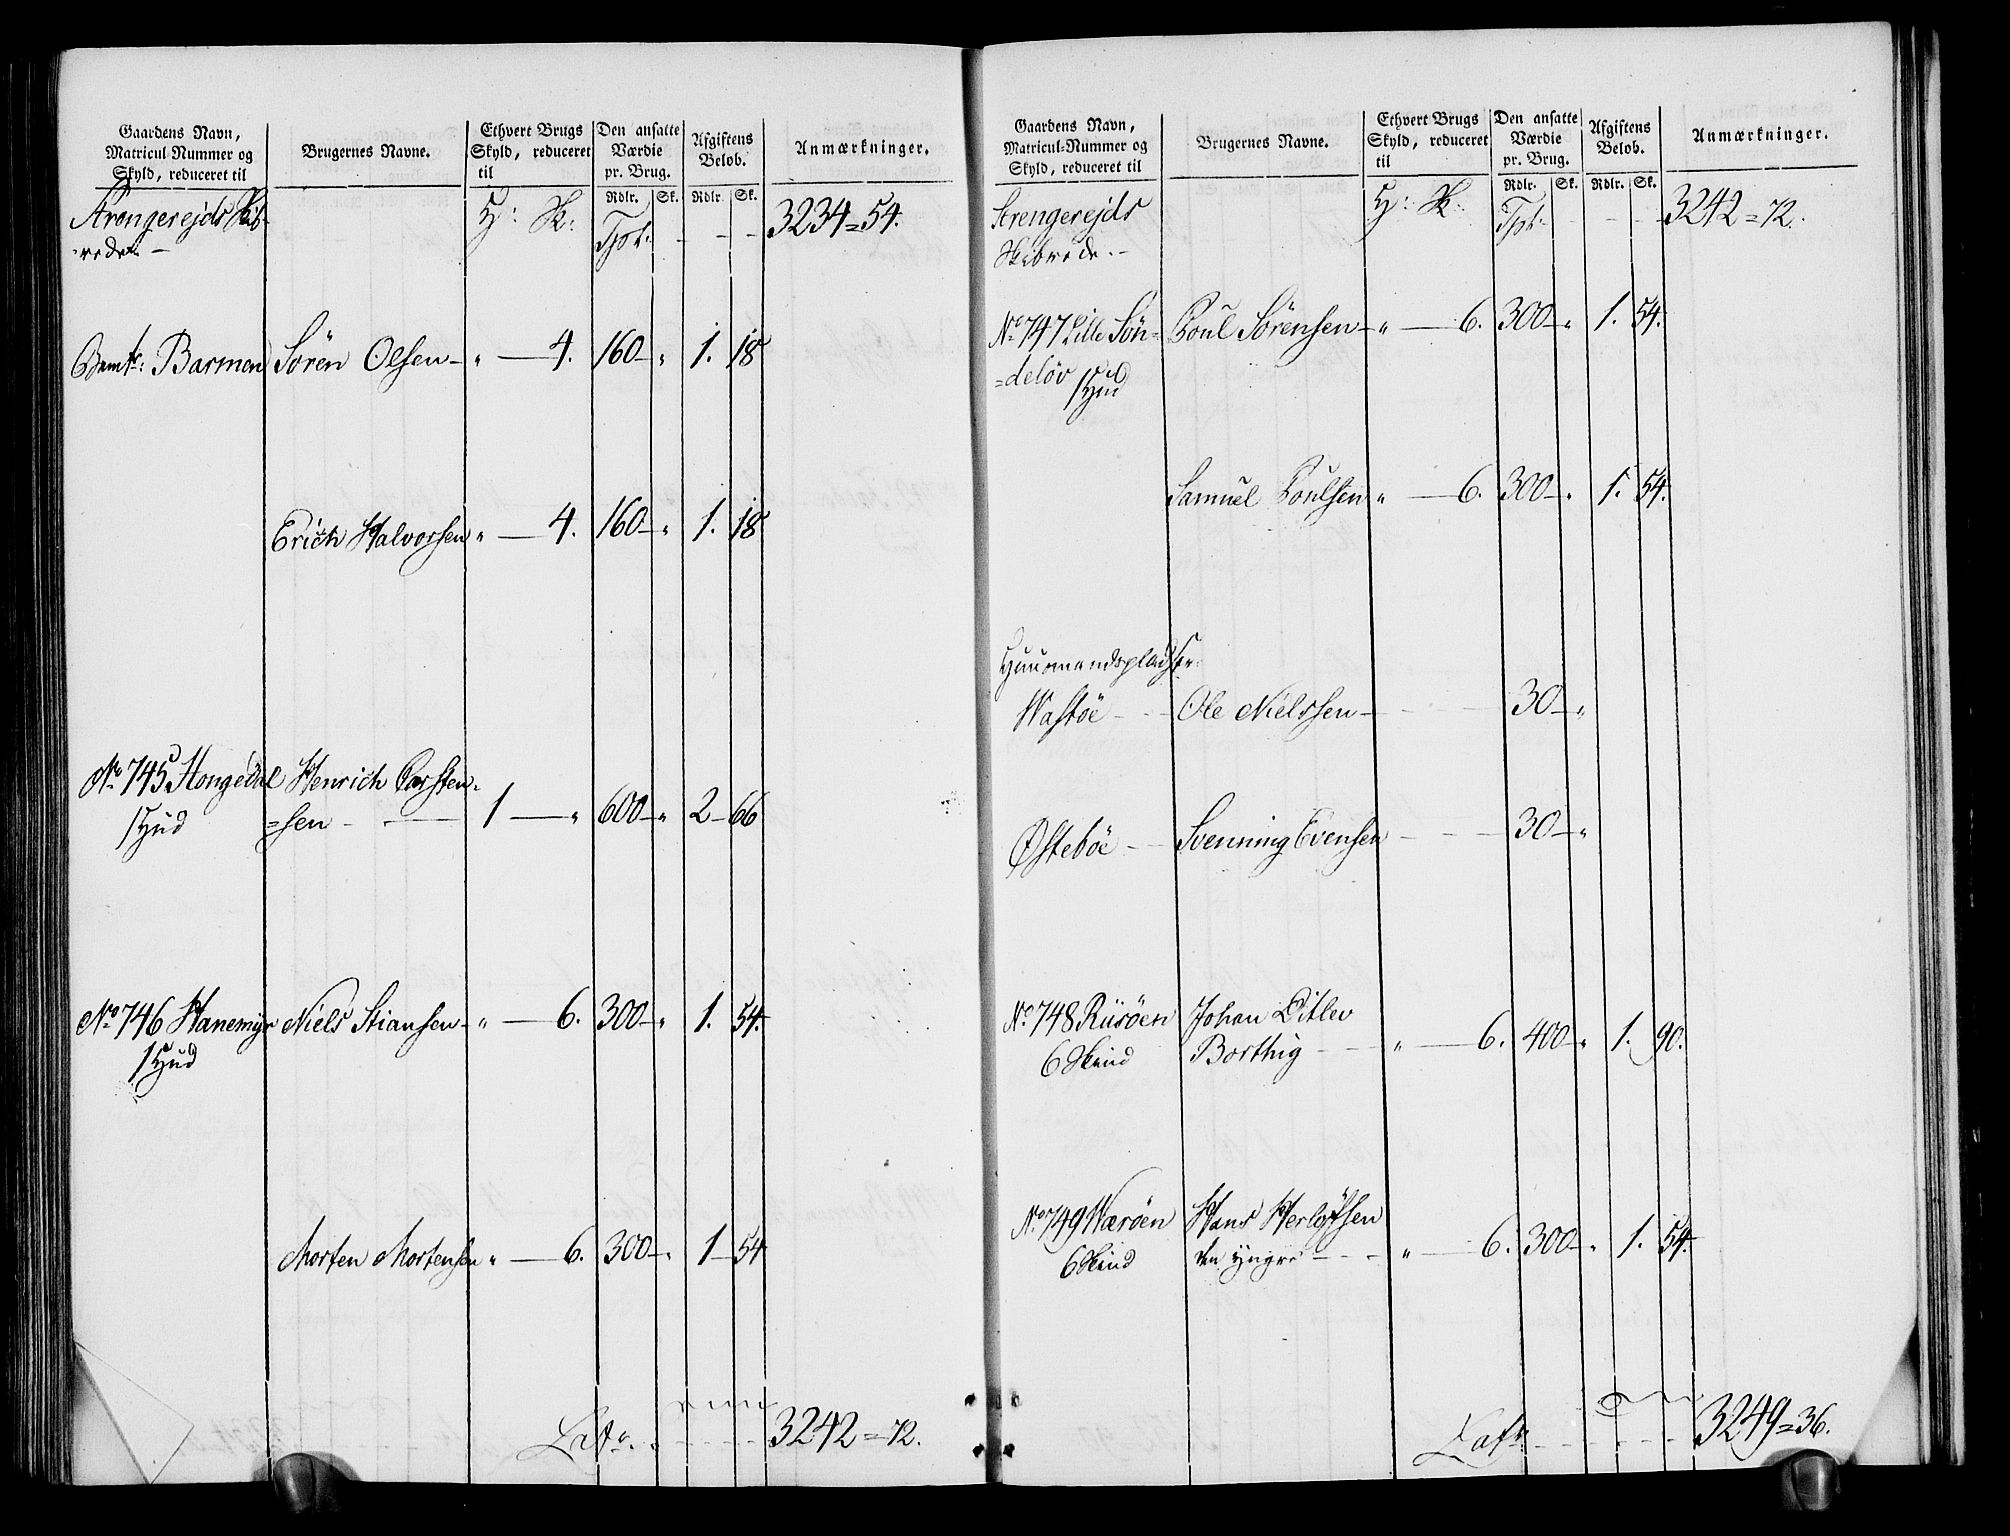 Gaardens Navn,
Matricul-Nummer og
Skyld, reduceret til
Brugernes Navne.
Ethvert Brugs
Skyld, reduceret
til
Den ansatte
Værdie
pr. Brug.
Rdlr. Sk.
Afgiftens
Beløb.
Rdlr. Sk.
Anmærkninger.
Strengerejds Skib-
rede — H: Sk: Tpt: - - - 3234=54.
Barmen Søren Olsen — " — 4. 160 — " 1. 18
Erich Halvorsen " — 4. 160 — " 1. 18
No 745 Hongedal Henrich Carsten-
1 Hud =sen — 1 — " 600 — " 2 — 66
No 746 Hanemyr Niels Stiansen — " — 6. 300 — " 1. 54.
1 Hud
Morten Mortensen " — 6. 300 — " 1 — 54
Lats. - - - 3242=72.
Gaardens Navn,
Matricul-Nummer og
Skyld, reduceret til
Brugernes Navne.
Ethvert Brugs
Skyld, reduceret
til
Den ansatte
Værdie
pr. Brug.
Rdlr. Sk.
Afgiftens
Beløb.
Rdlr. Sk.
Anmærkninger.
Strengerejds H: Sk: Tpt: - - - 3242=72.
Skibrede. —
No 747 Lille Søn= Poul Sørensen — " — 6. 300 — " 1. 54.
=deløv 1 Hud
Samuel Poulsen " — 6. 300 — " 1. 54.
Huusmandspladser:
Wastøe - - Ole Nielssen — - - 30 — "
Østebøe - - Svenning Evensen - - 30 — "
No 748 Riisøen Johan Ditlev
6 Skind Borthig - - " — 6. 400 — " 1. 90.
No 749 Wærøen Hans Herlofsen
6 Skind den yngre - - " — 6. 300 — " 1. 54.
Lats - - - 3249=36.